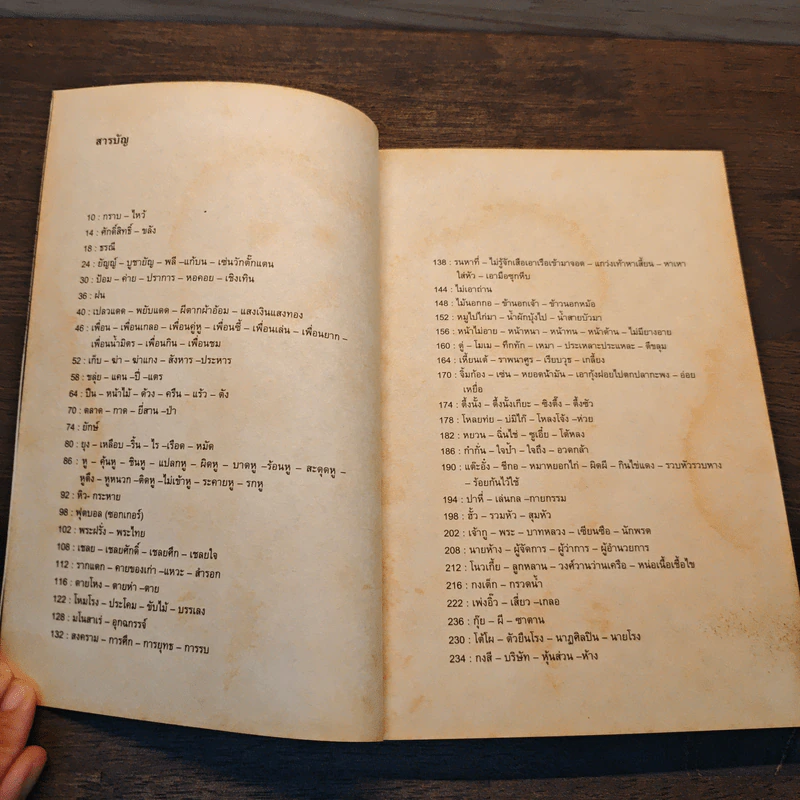 สารบัญ
10 : กราบ – ไหว้
14 : ศักดิ์สิทธิ์ – ขลัง
18 : ธรณี
24 : ยัญญ์ – บูชายัญ – พลี – แก้บน – เซ่นวักตั๊กแตน
30 : ป้อม – ค่าย – ปราการ – หอคอย – เชิงเทิน
36 : ฝน
40 : เปลวแดด – พยับแดด – ผีตากผ้าอ้อม – แสงเงินแสงทอง
46 : เพื่อน – เพื่อนเกลอ – เพื่อนคู่หู – เพื่อนซี้ – เพื่อนเล่น – เพื่อนยาก –
เพื่อนน้ำมิตร – เพื่อนกิน – เพื่อนชม
52 : เก็บ – ฆ่า – ฆ่าแกง – สังหาร –ประหาร
58 : ขลุ่ย – แคน –ปี่ –แตร
64 : ปืน – หน้าไม้ – ด้วง – ครืน – แร้ว – ดัง
70 : ตลาด – กาด – ยี่สาน –ป่า
74 : ยักษ์
80 : ยุง – เหลือบ –ริ้น – ไร –เรือด – หมัด
86 : หู – คุ้นหู – ชินหู – แปลกหู – ผิดหู – บาดหู –ร้อนหู – สะดุดหู –
หูตึง – หูหนวก –ติดหู –ไม่เข้าหู – ระคายหู – รกหู
92 : หิว– กระหาย
98 : ฟุตบอล (ซอกเกอร์)
102 : พระฝรั่ง – พระไทย
108 : เชลย – เชลยศักดิ์ – เชลยศึก – เชลยใจ
112 : รากแตก – คายของเก่า –แหวะ – สำรอก
116 : ตายโหง – ตายห่า –ตาย
122 : โหมโรง – ประโคม – ขับไม้ – บรรเลง
128 : มโนสาเร่ – อุกฉกรรจ์
132 : สงคราม – การศึก – การยุทธ – การรบ
138 : รนหาที่ – ไม่รู้จักเสือเอาเรือเข้ามาจอด – แกว่งเท้าหาเสี้ยน – หาเหา
ใส่หัว – เอามือซุกหีบ
144 : ไม่เอาถ่าน
148 : ไม้นอกกอ – ข้านอกเจ้า – ข้าวนอกหม้อ
152 : หมูไปไก่มา – น้ำผักบุ้งไป – น้ำสายบัวมา
156 : หน้าไม่อาย – หน้าหนา – หน้าทน – หน้าด้าน – ไม่มียางอาย
160 : ตู่ – โมเม – ทึกทัก – เหมา – ประเหลาะประแหละ – ตีขลุม
164 : เหี้ยนเต้ – ราพนาศูร – เรียบวุธ – เกลี้ยง
170 : จิ้มก้อง – เซ่น – หยอดน้ำมัน – เอากุ้งฝอยไปตกปลากะพง – อ่อย
เหยื่อ
174 : ตึ้งนั้ง – ตึ้งนั้งเกียะ – ซิงตึ๊ง – ตึ้งซัว
178 : โหลยท่ย – บ่มีไก๊ – โหลงโจ้ง –ห่วย
182 : หยวน – ฉิ่นไช่ – ซูเอี๋ย – โต้หลง
186 : กำกั๋น – ใจป้ำ – ใจถึง – อวดกล้า
190 : แต๊ะอั๋ง – ซีกอ – หมาหยอกไก่ – ผีดผี – กินไข่แดง – รวบหัวรวบหาง
– ร้อยกันไว้ใช้
194 : ปาหี่ – เล่นกล –กายกรรม
198 : ฮั้ว – รวมหัว – สุมหัว
202 : เจ้ากู – พระ – บาทหลวง – เซียนซือ – นักพรต
208 : นายห้าง – ผู้จัดการ – ผู้ว่าการ – ผู้อำนวยการ
212 : โนวเกี้ย – ลูกหลาน – วงศ์วานว่านเครือ – หน่อเนื้อเชื้อไข
216 : กงเต๊ก – กรวดน้ำ
222 : เพ่งอิ้ว – เสี่ยว –เกลอ
236 : กุ๊ย – ผี – ซาตาน
230 : โต้โผ – ตัวยืนโรง – นาฏศิลปิน – นายโรง
234 : กงสี – บริษัท – หุ้นส่วน –ห้าง